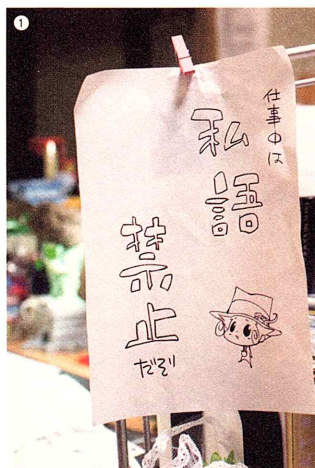 ①
仕事中は
私語
禁止
だぞ